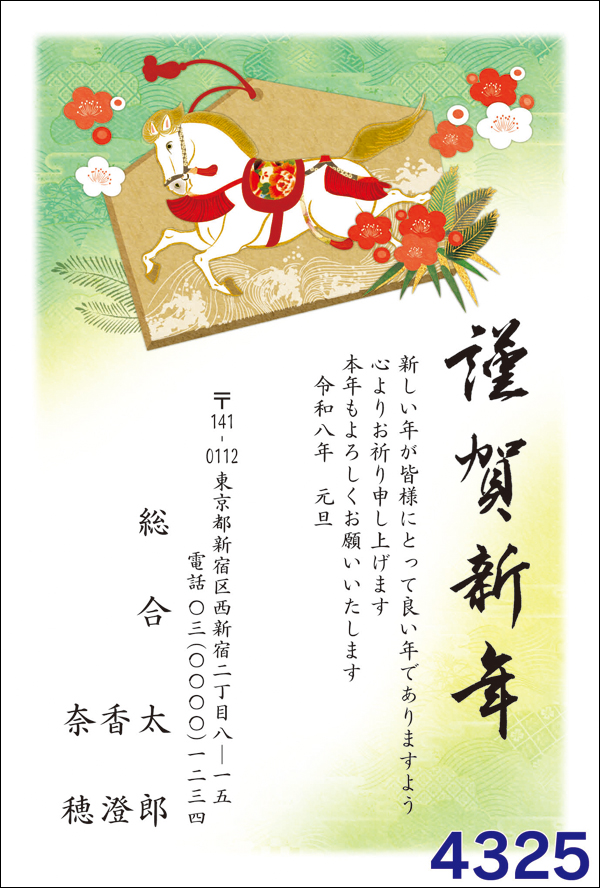 謹賀新年
新しい年が皆様にとって良い年でありますよう
心よりお祈り申し上げます
本年もよろしくお願いいたします
令和八年　元旦
〒141-0112 東京都新宿区西新宿二丁目八―一五
電話 〇三(〇〇〇〇)一二三四
総合太郎
香澄
奈穂
4325